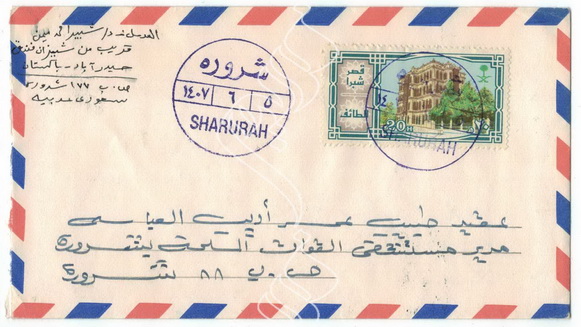 المرسل: د/ شبير احمد ميمن
قريب من شبيزان فندق
حيدرآباد - باكستان
ص. ب ١٧٧ شرورة
سعودي عربيه
شروره
١٤٠٧ ٦ ٥
SHARURAH
قصر
شبرا
الطائف
20 H
١٤٠
SHARURAH
عقيد طبيب عمر أديب العباسي
مدير مستشفى القوات المسلحة بشرورة
ص. ب ٨٨ شرورة